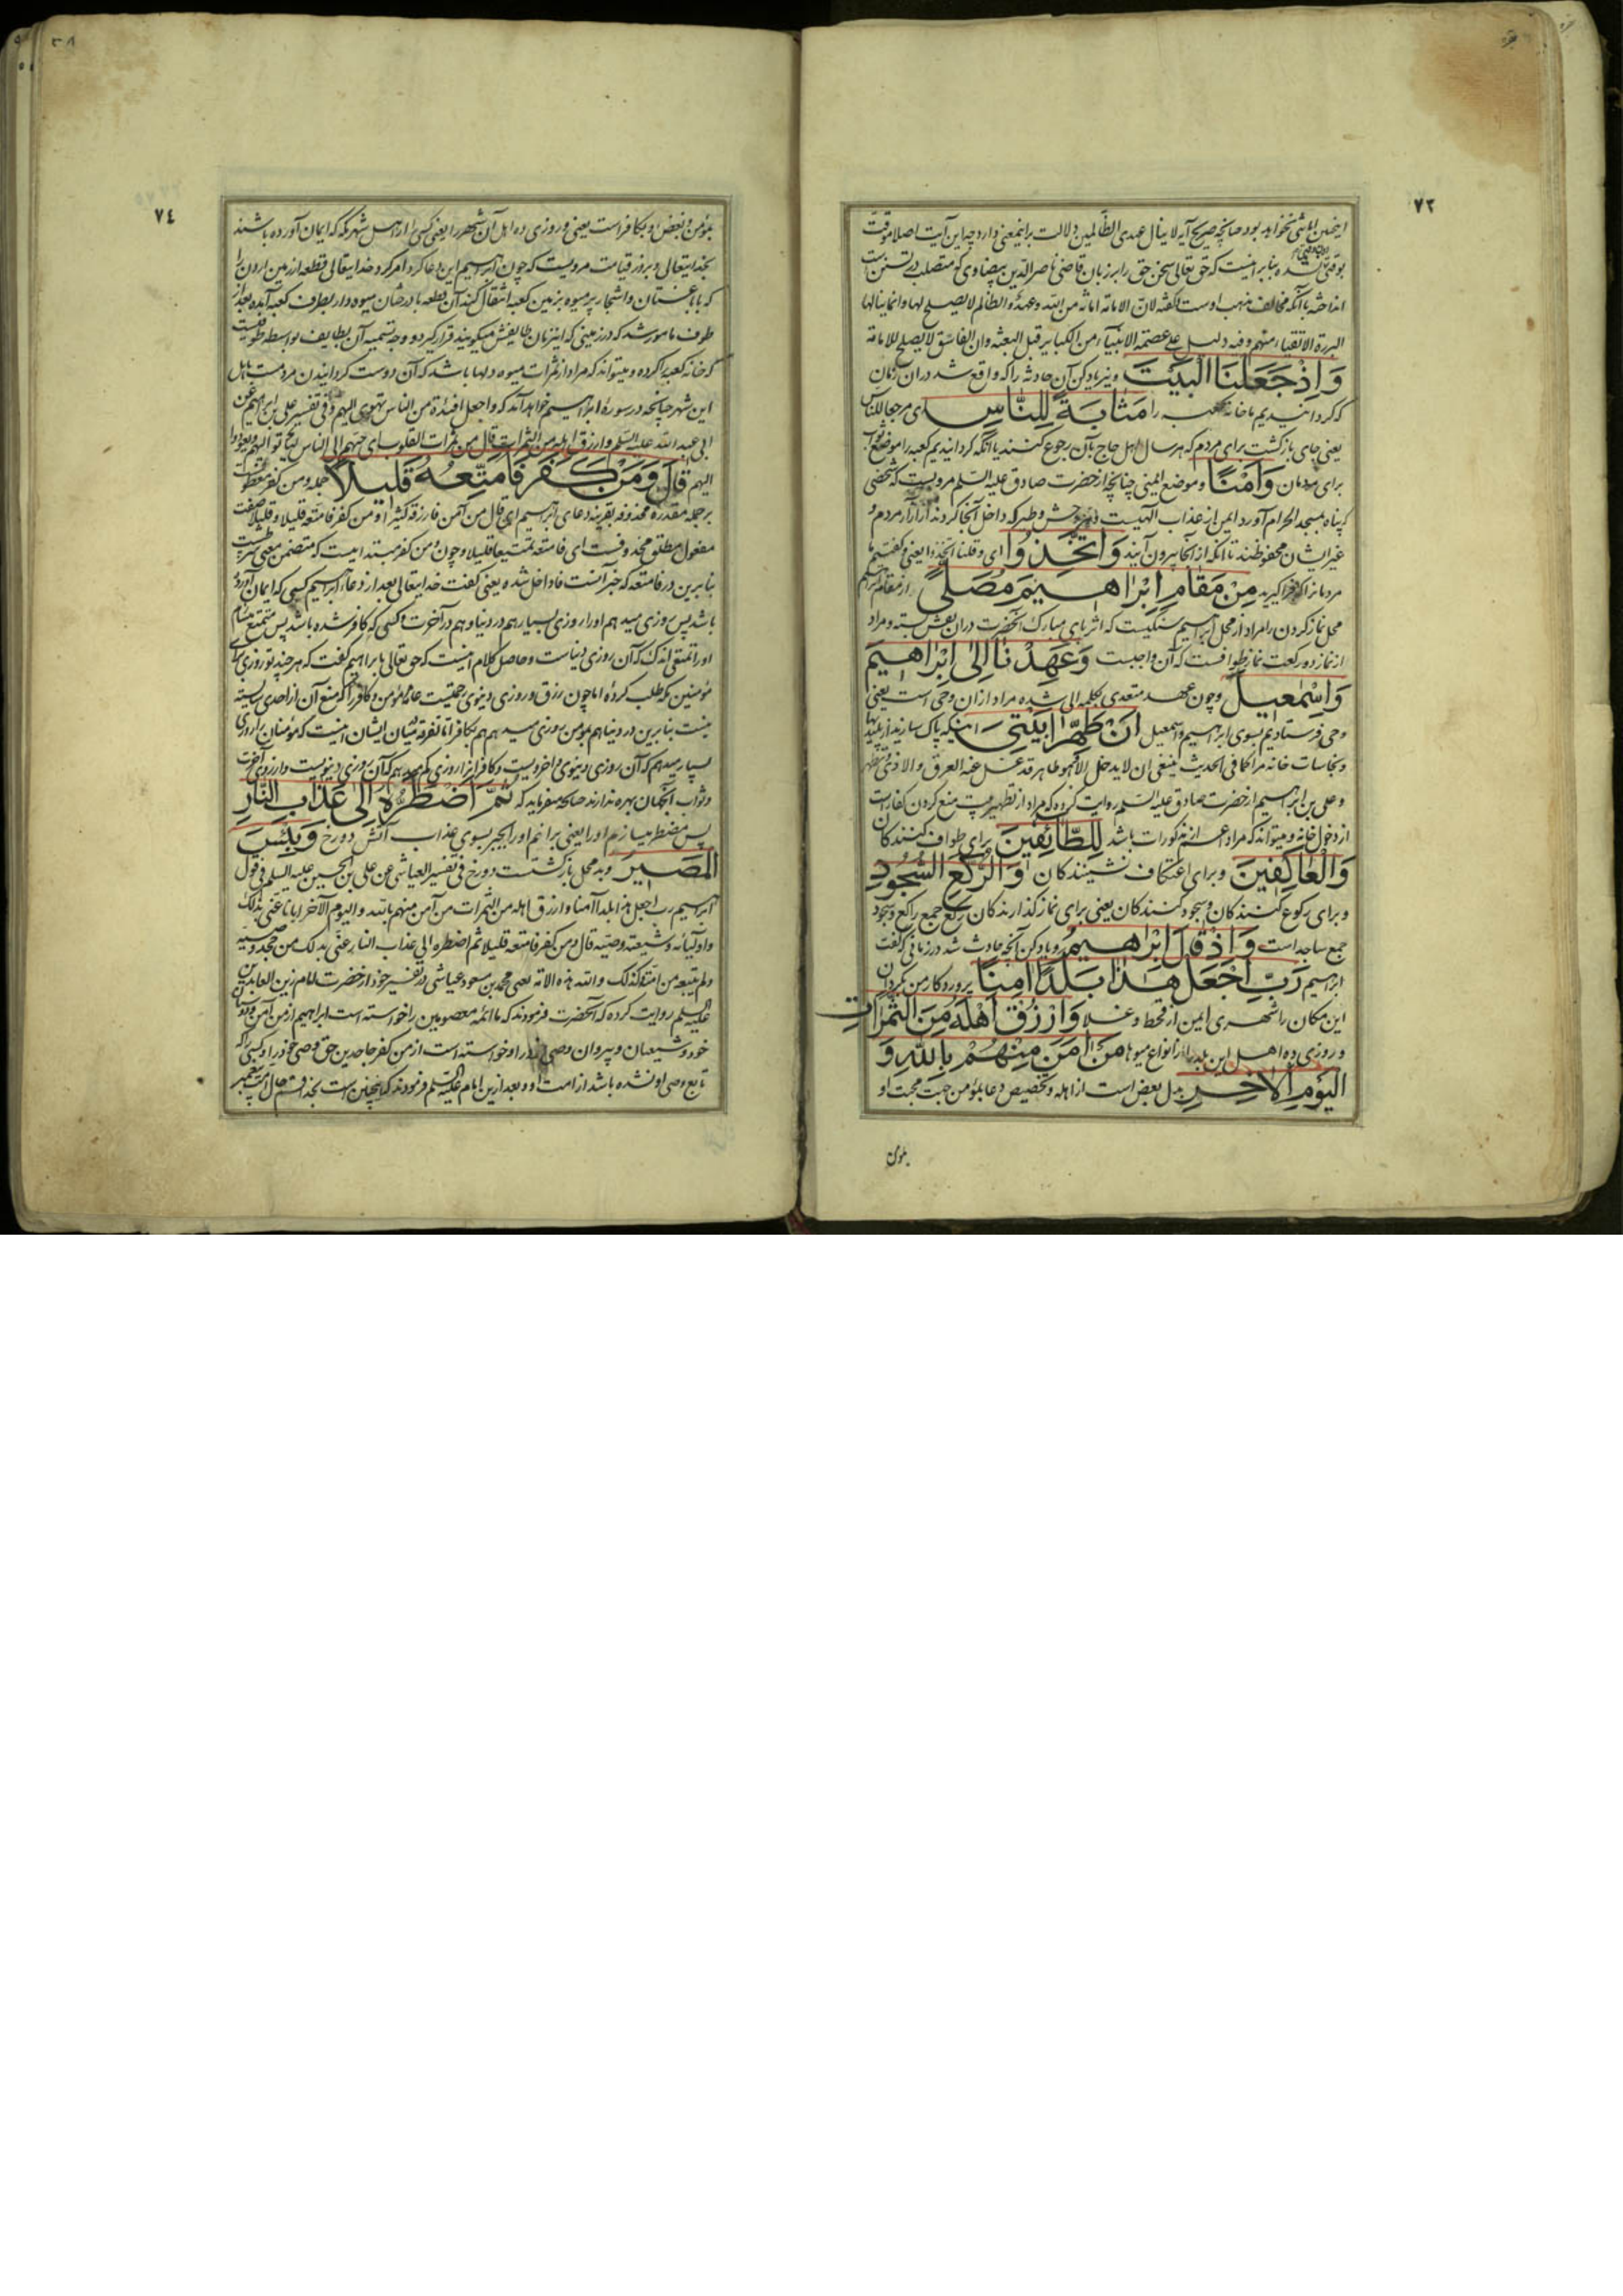 ٧٢
اینچنین الهاشی نخواهد بود چنانچه صریح آیه لا ینال عهدی الظالمین دلالت براینمعنی دارد چه این آیت اصلا موقت
بوقتی نشده بنابر اینست که حق تعالی سخن حق را بر زبان قاضی ناصر الدین بیضاوی که متصلب در تسنن است
انداخته با آنکه مخالف مذهب اوست گفته لان الامانة امانة من الله وعهد والظالم لا یصلح لها وانما ینالها
البررة الاتقیاء منهم وفیه دلیل علی عصمة الانبیاء من الکبایر قبل البعثة وان الفاسق لا یصلح للامامة
وَاِذْ جَعَلْنَا الْبَيْتَ ونیز یاد کن آن حادثه را که واقع شد در آن زمان
که گردانیدیم ما خانه کعبه را مَثَابَةً لِلنَّاسِ ای مرجعا للناس
یعنی جای بازگشت برای مردم که هر سال اهل حاج بآن رجوع کنند یا آنکه گردانیدیم کعبه را موضع ثواب
برای مردمان وَاَمْنًا وموضع ایمنی چنانچه از حضرت صادق علیه السلم مرویست که شخصی
که پناه بمسجد الحرام آورد ایمن از عذاب الهیست وهر وحش وطیر که داخل آنجا گردند از آزار مردم و
غیر ایشان محفوظند تا آنکه از آنجا بیرون آیند وَاتَّخِذُوا ای وقلنا اتخذوا یعنی وگفتیم ما
مردمانرا که فرا گیرید مِنْ مَقَامِ اِبْرَاهِيمَ مُصَلًّى از مقام ابراهیم
محل نماز کردن را مراد از محل ابراهیم سنگیست که اثر پای مبارک آنحضرت در آن نقش بسته ومراد
از نماز دو رکعت نماز طوافست که آن واجبست وَعَهِدْنَا اِلَى اِبْرَاهِيمَ
وَاِسْمٰعِيلَ وچون عهد متعدی بکلمه الی شده مراد از آن وحی است یعنی
وحی فرستادیم بسوی ابراهیم واسمعیل اَنْ طَهِّرَا بَيْتِيَ اینکه پاک سازید از پلیدیها
ونجاسات خانه مرا کما فی الحدیث ینبغی ان لا یدخل الا وهو طاهر قد غسل عنه العرق والاذی وتطهر
وعلی بن ابراهیم از حضرت صادق علیه السلم روایت کرده که مراد از تطهیر بیت منع کردن کفار است
از دخول خانه ومیتواند که مراد اعم از مذکورات باشد لِلطَّائِفِينَ برای طواف کنندگان
وَالْعَاكِفِينَ وبرای اعتکاف نشینندگان وَالرُّكَّعِ السُّجُودِ
وبرای رکوع کنندگان وسجود کنندگان یعنی برای نماز گذارندگان رکع جمع راکع وسجود
جمع ساجد است وَاِذْ قَالَ اِبْرَاهِيمُ ویاد کن آنچه حادث شد در زمانی که گفت
ابراهیم رَبِّ اجْعَلْ هٰذَا بَلَدًا اٰمِنًا پروردگار من بگردان
این مکان را شهری ایمن از قحط وغلا وَارْزُقْ اَهْلَهُ مِنَ الثَّمَرَاتِ
وروزی ده اهل این بلد را از انواع میوها مَنْ اٰمَنَ مِنْهُمْ بِاللّٰهِ وَ
الْيَوْمِ الْاٰخِرِ بدل بعض است از اهله وتخصیص دعا بمؤمن جهت محبت او
بمؤمن
٧٤
بمؤمن وبغض او بکافر است یعنی وروزی ده اهل آن شهر را یعنی کسی را از اهل شهر مکه که ایمان آورده باشند
بخدایتعالی وبروز قیامت مرویست که چون ابراهیم این دعا کرد امر کرد خدایتعالی قطعه از زمین اردن را
که با باغستان واشجار پر میوه بزمین کعبه انتقال کند آن قطعه با درختان میوه دار بطرف کعبه آمده بعد از
طواف مامور شد که در زمینی که این زمان طایفش میگویند قرار گیرد ووجه تسمیه آن بطایف بواسطه طوفیست
که خانه کعبه را کرده ومیتواند که مراد از ثمرات میوه دلها باشد که آن دوست گردانیدن مردمست باهل
این شهر چنانچه در سوره ابراهیم خواهد آمد که واجعل افئدة من الناس تهوی الیهم وفی تفسیر علی بن ابراهیم عن
ابی عبد الله علیه السلم وارزق اهله من الثمرات قال من ثمرات القلوب ای حببهم الی الناس لیحجوا الیهم ویعودوا
الیهم قَالَ وَمَنْ كَفَرَ فَاُمَتِّعُهُ قَلِيلًا جمله ومن کفر معطوفست
بر جمله مقدره محذوفه بقرینه دعای ابراهیم ای قال من آمن فارزقه کثیرا ومن کفر فامتعه قلیلا وقلیلا صفت
مفعول مطلق محذوفست ای فامتعه تمتیعا قلیلا وچون ومن کفر مبتداییست که متضمن معنی شرطیست
بنابرین در فامتعه که خبر آنست فا داخل شده یعنی گفت خدایتعالی بعد از دعاء ابراهیم کسی که ایمان آورده
باشد پس روزی میدهم او را روزی بسیار هم در دنیا وهم در آخرت وکسی که کافر شده باشد پس متمتع میسازم
او را تمتعی اندک که آن روزی دنیاست وحاصل کلام اینست که حق تعالی بابراهیم گفت که هر چند تو روزی برای
مؤمنین مکه طلب کرده اما چون رزق وروزی دنیوی رحمتیست عامه مؤمن وکافر را که منع آن از احدی شایسته
نیست بنابرین در دنیا هم بمؤمن روزی میدهم هم بکافر اما تفرقه میان ایشان اینست که مؤمنان را روزی
بسیار میدهم که آن روزی دنیوی واخرویست وکافرانرا روزی کم میدهم که آن روزی دنیویست واز روزی آخرت
وثواب آنجهان بهره ندارند چنانچه میفرماید که ثُمَّ اَضْطَرُّهُ اِلَى عَذَابِ النَّارِ
پس مضطر میسازم او را یعنی برانم او را بجبر بسوی عذاب آتش دوزخ وَبِئْسَ
الْمَصِيرُ وبد محل بازگشتست دوزخ فی تفسیر العیاشی عن علی بن الحسین علیه السلم فی قول
ابراهیم رب اجعل هذا بلدا آمنا وارزق اهله من الثمرات من آمن منهم بالله والیوم الآخر ایانا عنی بذلک
واولیائه وشیعته وصیه قال ومن کفر فامتعه قلیلا ثم اضطره الی عذاب النار عنی بذلک من جحد وصیه
ولم یتبعه من امته کذلک والله هذه الامة یعنی محمد بن مسعود عیاشی در تفسیر خود از حضرت امام زین العابدین
علیه السلم روایت کرده که آنحضرت فرمودند که ما ائمه معصومین را خواسته است ابراهیم از من آمن ودوستان
خود وشیعیان وپیروان وصی او را وخواسته است از من کفر جاحدین حق وصی خود را وکسی را که
تابع وصی او نشده باشد از امت او وبعد ازین امام علیه السلم فرمودند که اینچنین است بخدا قسم حال امت پیغمبر